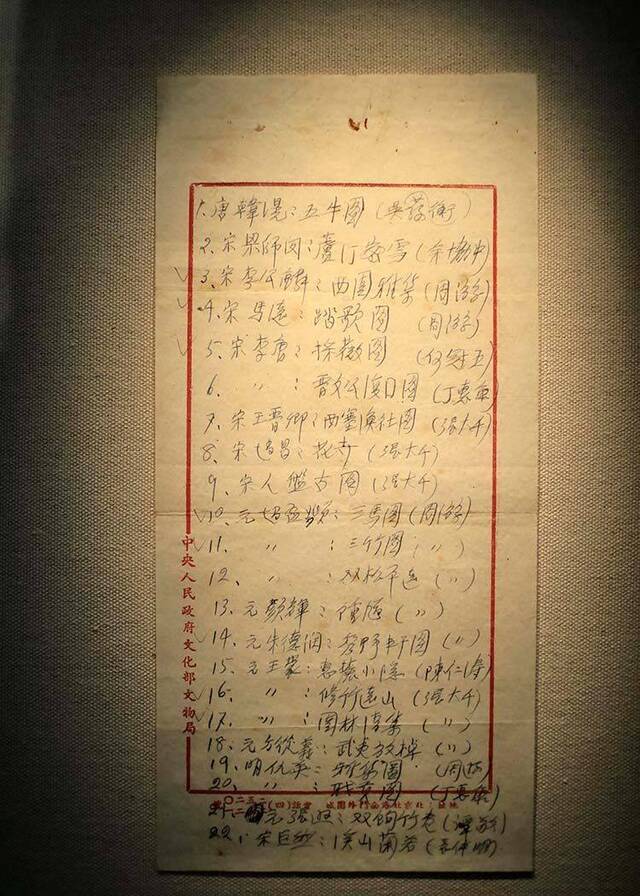 1. 唐韓滉：五牛圖（吳蘅衛）
2. 宋梁師閔：蘆汀密雪（余協中）
✓ 3. 宋李公麟：西園雅集（周游）
✓ 4. 宋馬遠：踏歌圖（周游）
✓ 5. 宋李唐：採薇圖（何冠五）
6. 〃：晋文公復囗圖（丁惠康）
7. 宋王晋卿：西塞漁社圖（張大千）
8. 宋趙昌：花卉（張大千）
9. 宋人盤古圖（張大千）
✓ 10. 元趙孟頫：三馬圖（周游）
✓ 11. 〃：三竹圖（〃）
12. 〃：双松平遠（〃）
13. 元顏輝：（〃）
✓ 14. 元朱德潤：秀野軒圖（〃）
15. 元王蒙：惠麓小隱（陳仁濤）
✓ 16. 〃：修竹遠山（張大千）
✓ 17. 〃：園林清集（〃）
18. 元方從義：武夷放棹（〃）
19. 明仇英：圖（周游）
20. 〃：職貢圖（丁惠康）
21. 元張遜：双鉤竹卷（譚敬）
22. 宋巨然：溪山蘭若（王伸）
中央人民政府文化部文物局